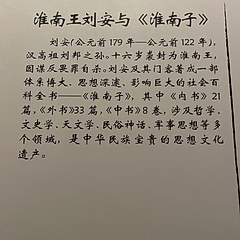 淮南王刘安与《淮南子》
刘安(公元前179年—公元前122年),
汉高祖刘邦之孙。十六岁袭封为淮南王,
因谋反畏罪自杀。刘安及其门客著成一部
体来博大、思想深邃、影响巨大的社会百
科全书——《淮南子》,其中《内书》21
篇,《外书》33篇,《中书》8卷,涉及哲学、
文史学、天文学、民俗神话、军事思想等多
个领域,是中华民族宝贵的思想文化
遗产。